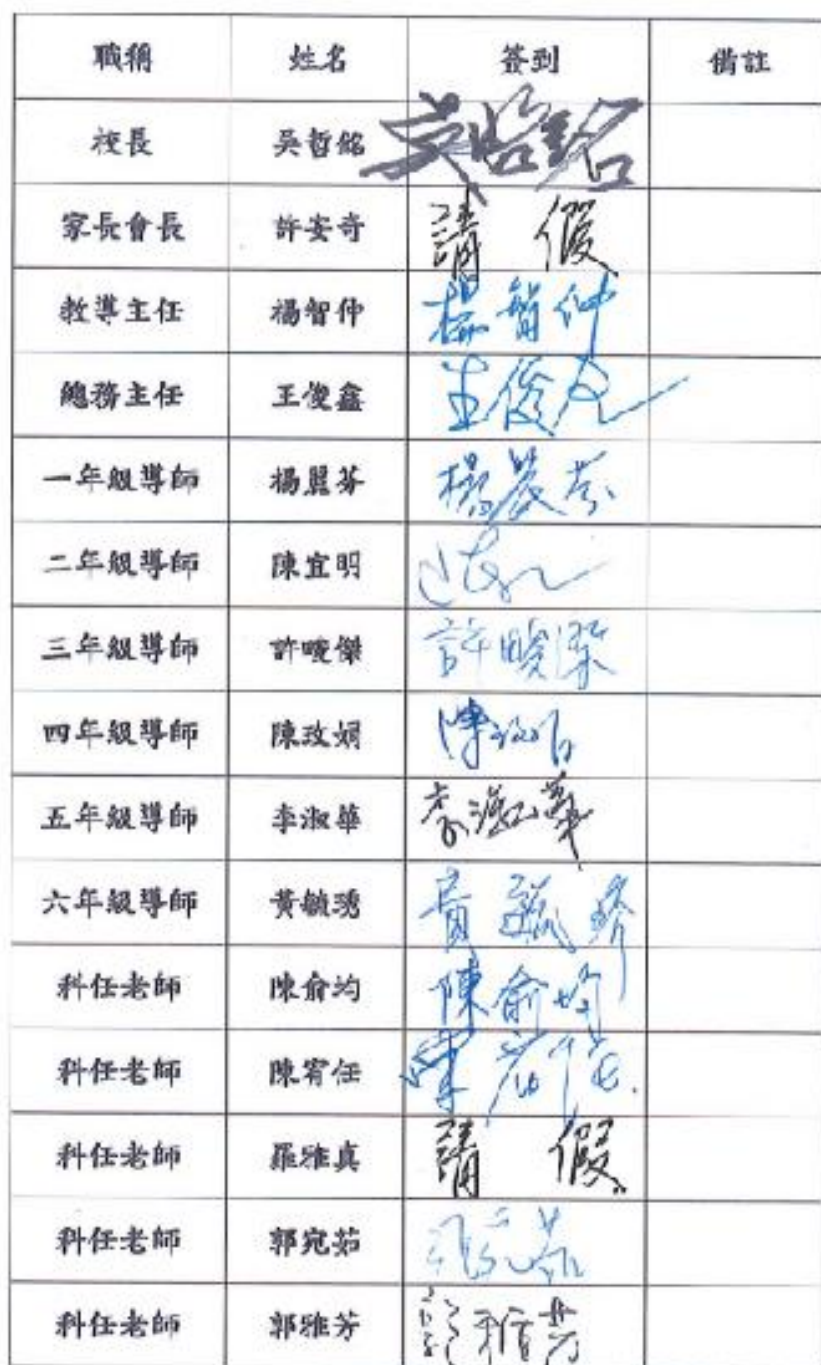 職稱 姓名 簽到 備註
校長 吳哲銘 吳哲銘
家長會長 許安奇 請假
教導主任 楊智仲 楊智仲
總務主任 王俊鑫 王俊鑫
一年級導師 楊麗芬 楊麗芬
二年級導師 陳宜明
三年級導師 許晙傑 許晙傑
四年級導師 陳玫娟 陳玫娟
五年級導師 李淑華 李淑華
六年級導師 黃毓琇 黃毓琇
科任老師 陳俞均 陳俞均
科任老師 陳宥任 陳宥任
科任老師 羅雅真 請假
科任老師 郭宛茹 郭宛茹
科任老師 郭雅芳 郭雅芳